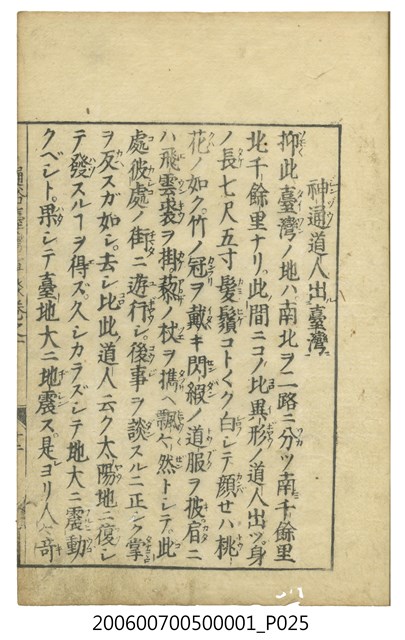 神通道人出臺灣ニ
抑此臺灣ノ地ハ南北ヲ二路ニ分ツ南千餘里
北千餘里ナリ此ノ間ニコノ比異形ノ道人出ツ身
ノ長七尺五寸髮鬚コトく ク白シテ顔セハ桃
花ノ如ク竹ノ冠ヲ戴キ閃緞ノ道服ヲ披肩ニ
ハ飛雲裘ヲ掛藜ノ杖ヲ攜ヘ飄々然トシテ此
處彼處ノ街ニ遊行シ後事ヲ談スルニ正シク掌
ヲ反スガ如シ去シ比此道人云ク太陽地ニ復シ
テ發スルヿヲ得ズ久シカラズシテ地大ニ震動
クベシト果シテ臺地大ニ地震ス是ヨリ人々奇
200600700500001_P025